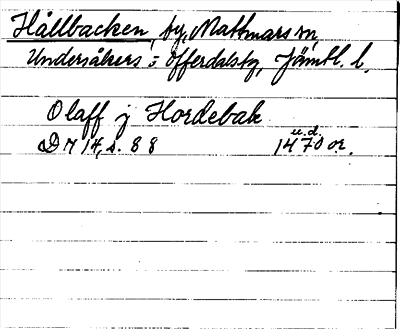 Hållbacken, by, Mattmars sn,
Undersåkers o Offerdals tg, Jämtl. l.
Olaff j Hordebak
u.d.
DN 14, s. 88 1470 or.